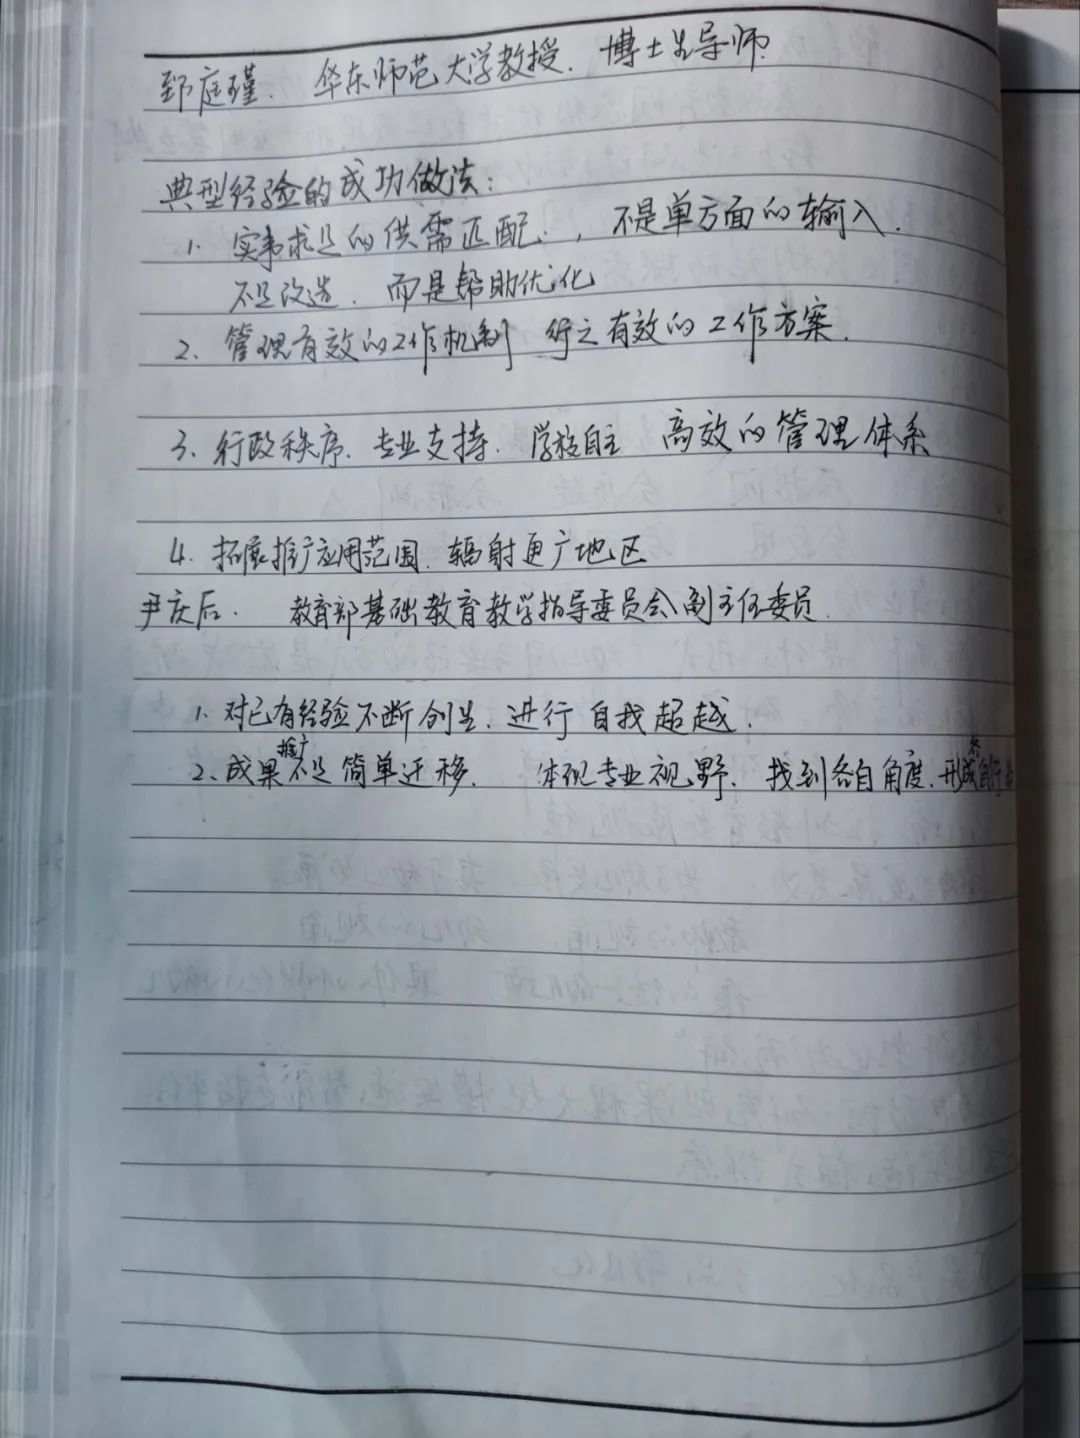 郅庭瑾. 华东师范大学教授. 博士生导师.
典型经验的成功做法:
1. 实事求是的供需匹配., 不是单方面的输入.
不是改造. 而是帮助优化
2、管理有效的工作机制 行之有效的工作方案.
3. 行政秩序. 专业支持. 学校自主 高效的管理体系
4. 拓展推广应用范围. 辐射更广地区
尹庆后. 教育部基础教育教学指导委员会副主任委员.
1. 对已有经验不断创生. 进行自我超越.
2、成果推广不是简单迁移. 体现专业视野. 找到各自角度. 形成各自行